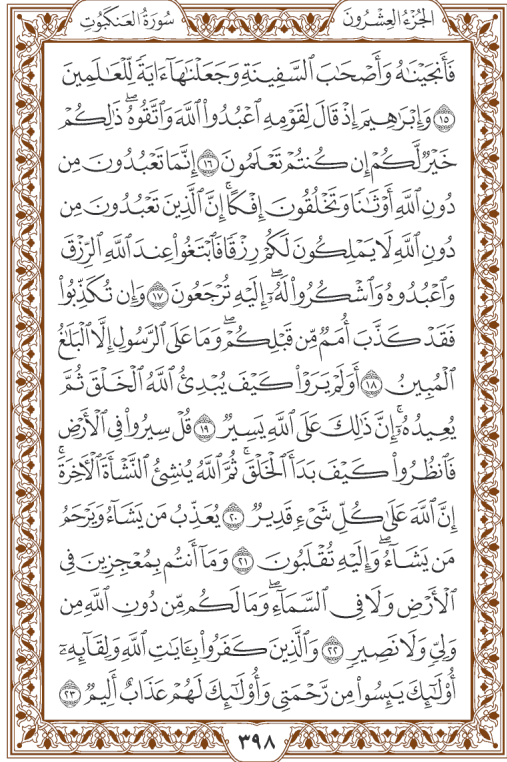 الجُزْءُ العِشْرُونَ
سُورَةُ العَنكَبُوتِ
فَأَنجَيْنَٰهُ وَأَصْحَٰبَ ٱلسَّفِينَةِ وَجَعَلْنَٰهَآ ءَايَةً لِّلْعَٰلَمِينَ
١٥ وَإِبْرَٰهِيمَ إِذْ قَالَ لِقَوْمِهِ ٱعْبُدُوا۟ ٱللَّهَ وَٱتَّقُوهُ ۖ ذَٰلِكُمْ
خَيْرٌ لَّكُمْ إِن كُنتُمْ تَعْلَمُونَ ١٦ إِنَّمَا تَعْبُدُونَ مِن
دُونِ ٱللَّهِ أَوْثَٰنًا وَتَخْلُقُونَ إِفْكًا ۚ إِنَّ ٱلَّذِينَ تَعْبُدُونَ مِن
دُونِ ٱللَّهِ لَا يَمْلِكُونَ لَكُمْ رِزْقًا فَٱبْتَغُوا۟ عِندَ ٱللَّهِ ٱلرِّزْقَ
وَٱعْبُدُوهُ وَٱشْكُرُوا۟ لَهُۥٓ ۖ إِلَيْهِ تُرْجَعُونَ ١٧ وَإِن تُكَذِّبُوا۟
فَقَدْ كَذَّبَ أُمَمٌ مِّن قَبْلِكُمْ ۖ وَمَا عَلَى ٱلرَّسُولِ إِلَّا ٱلْبَلَٰغُ
ٱلْمُبِينُ ١٨ أَوَلَمْ يَرَوْا۟ كَيْفَ يُبْدِئُ ٱللَّهُ ٱلْخَلْقَ ثُمَّ
يُعِيدُهُۥٓ ۚ إِنَّ ذَٰلِكَ عَلَى ٱللَّهِ يَسِيرٌ ١٩ قُلْ سِيرُوا۟ فِى ٱلْأَرْضِ
فَٱنظُرُوا۟ كَيْفَ بَدَأَ ٱلْخَلْقَ ۚ ثُمَّ ٱللَّهُ يُنشِئُ ٱلنَّشْأَةَ ٱلْـَٔاخِرَةَ ۚ
إِنَّ ٱللَّهَ عَلَىٰ كُلِّ شَىْءٍ قَدِيرٌ ٢٠ يُعَذِّبُ مَن يَشَآءُ وَيَرْحَمُ
مَن يَشَآءُ ۖ وَإِلَيْهِ تُقْلَبُونَ ٢١ وَمَآ أَنتُم بِمُعْجِزِينَ فِى
ٱلْأَرْضِ وَلَا فِى ٱلسَّمَآءِ ۖ وَمَا لَكُم مِّن دُونِ ٱللَّهِ مِن
وَلِىٍّ وَلَا نَصِيرٍ ٢٢ وَٱلَّذِينَ كَفَرُوا۟ بِـَٔايَٰتِ ٱللَّهِ وَلِقَآئِهِۦٓ
أُو۟لَٰٓئِكَ يَئِسُوا۟ مِن رَّحْمَتِى وَأُو۟لَٰٓئِكَ لَهُمْ عَذَابٌ أَلِيمٌ ٢٣
٣٩٨